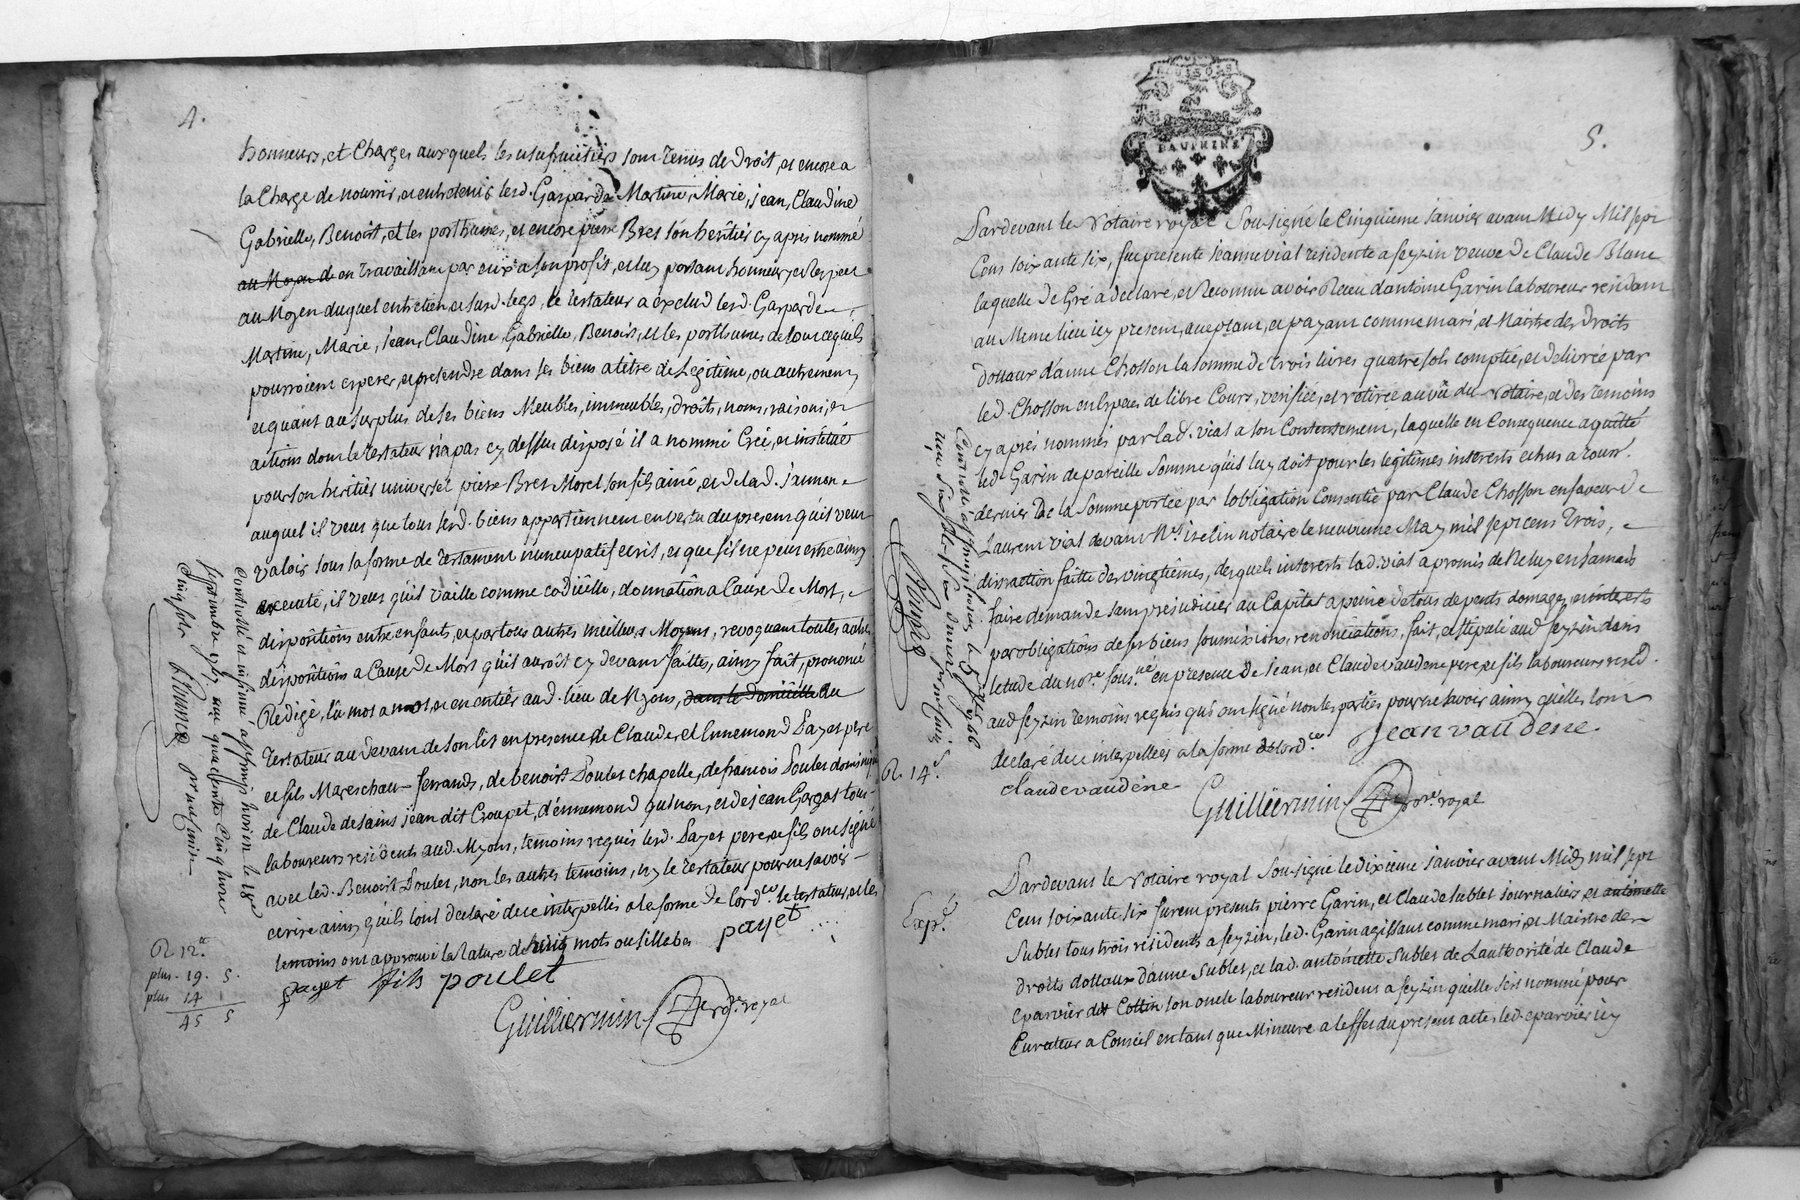 4.
honneurs, et Charges auxquels les usufruitiers sont tenus de droit, et encore a
la Charge de nourrir, et entretenir lesd. Gasparde Martine, Marie, jean, Claudine
Gabrielle, Benoit, et les posthumes, et encore pierre Bres son heritier cy apres nommé
au Moyen de en travaillant par eux a son profit, et luy portant honneur, et respect
au Moyen duquel entretien et susd. legs, le testateur a exclud lesd. Gasparde
Martine, Marie, jean, Claudine, Gabrielle, Benoit, et les posthumes de tout ce quels
pourroient esperer, et pretendre dans ses biens a titre de Legitime, ou autrement
et quant au surplus de ses biens Meubles, immeubles, droits, noms, raisons, et
actions dont le testateur n'a pas cy dessus disposé il a nommé Créé, et institué
pour son heritier universel pierre Bres Morel son fils ainé, et de lad.
auquel il veut que tous sesd. biens appartiennent en vertu du present qu'il veut
valoir sous la forme de testament nuncupatif ecrit, et que s'il ne peut estre ainsy
executé, il veut qu'il vaille comme codicille, donnation a Cause de Mort,
dispositions entre enfants, et par tous autres meilleurs Moyens, revoquant toutes autres
dispositions a Cause de Mort qu'il auroit cy devant faittes, ainsy fait, prononcé
Redigé, lû mot a mot, et en entier aud. lieu de Myons, dans le domicille du
testateur au devant de son lit en presence de Claude, et Ennemond Payet pere
et fils Mareschaux ferrands, de benoist Poulet chapelle, de francois Poulet
de Claude de saint jean dit Croupet, d'ennemond quinon, et de jean Gargat tous
laboureurs residents aud. Myons, temoins requis lesd. Payet pere, et fils ont signé
avec led. Benoist Poulet, non les autres temoins, ny le testateur pour ne savoir
ecrire ainsy qu'ils l'ont declaré de ce interpellés a la forme de lord.ce le testateur, et les
temoins ont approuvé la rature de huit mots ou sillabes payet
payet fils poulet
Guilliermin no.re royal
Controllé et insinué a st simphorien le 18e
septembre 1767 reçu quarante cinq livres
cinq sols
R 12.tt
plus - 19. 5.
plus 14
45 5
5.
DAUPHINE
Pardevant le Notaire royal Soussigné le Cinquieme janvier avant Midy Mil sept
Cens soixante six, fut presente jeanne vial residente a feyzin veuve de Claude Blanc
laquelle de Gré a declaré, et Reconnu avoir Receu d'antoine Garin laboureur residant
au Meme lieu icy present, acceptant, et payant comme mari, et Maistre des droits
dottaux d'anne Chosson la somme de trois livres quatre sols comptée, et delivrée par
led. Chosson en Especes de libre Cours, verifiée, et retirée au vû du Notaire, et des temoins
cy aprés nommés par lad. vial a son Contentement, laquelle en Consequence a quitté
led. Garin de pareille Somme qu'il luy doit pour les legitimes interests echus a
dernier de la Somme portée par l'obligation Consentie par Claude Chosson en faveur de
Laurent vial devant M.e iselin notaire le neuvieme May mil sept cens trois,
distraction faitte des vingtiêmes, desquels interests lad. vial a promis de ne luy en jamais
faire demande sans prejudicier au Capital a peine de tous depents domages, et interests
par obligations de ses biens soumissions, renonciations, fait, et stipulé aud. feyzin dans
letude du no.re sous.né en presence de jean, et Claude vaudene pere, et fils laboureurs resid.
aud. feyzin temoins requis qui ont signé non les parties pour ne savoir ainsy qu'elles l'ont
declaré de ce interpellées a la forme de lord.ce jean vaudene.
claude vaudene
Guilliermin no.re royal
R. 14.s
Expé.
Pardevant le Notaire royal Soussigné le dixieme janvier avant Midy mil sept
Cens soixante six furent presents pierre Garin, et Claude Sublet journaliers et antoinette
Sublet tous trois residents a feyzin, led. Garin agissant comme mari, et Maistre des
droits dottaux d'anne Sublet, et lad. antoinette Sublet de Lauthorité de Claude
eparvier dit Cottin son oncle laboureur resident a feyzin qu'elle s'est nommé pour
Curateur a Conseil en tant que Mineure a leffet du present acte, led. eparvier icy